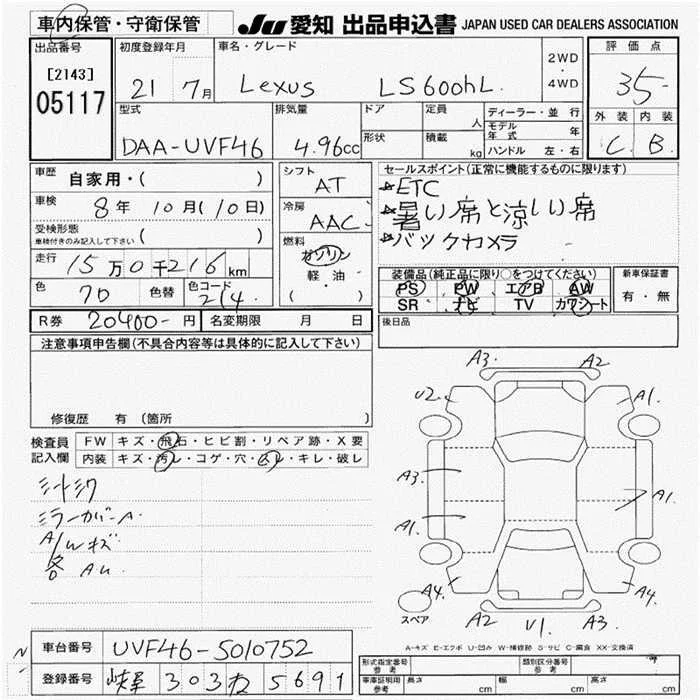 車内保管・守衛保管
JU 愛知 出品申込書 JAPAN USED CAR DEALERS ASSOCIATION
出品番号
[2143]
05117
初度登録年月
21 7月
車名・グレード
Lexus LS600hL
2WD
・
4WD
評価点
35-
外装 内装
C B
型式
DAA-UVF46
排気量
4.96cc
ドア
形状
定員 人
積載 kg
ディーラー・並行
モデル年式 年
ハンドル 左・右
車歴 自家用・( )
車検 8年10月(10日)
受検形態
車検付きのみ記入して下さい ( )
走行 15万0千216km
色 色替 色コード
214
シフト
AT
冷房
AAC
燃料
ガソリン
軽・油
( ・ )
セールスポイント(正常に機能するものに限ります)
★ETC
★暑い席と涼しい席
★バックカメラ
装備品(純正品に限り○をつけてください)
PS PW エアB AW
SR ナビ TV カワシート
新車保証書
有・無
後日品
R券 20400-円 名変期限 月 日
注意事項申告欄(不具合内容等は具体的に記入して下さい)
修復歴 有(箇所 )
検査員記入欄
FW キズ・飛石・ヒビ割・リペア跡・X要
内装 キズ・汚レ・コゲ・穴・スレ・キレ・破レ
シートシワ
ミラーカバーA
A/Wキズ
各AU
A3 A2
U2 A1
A3
A1 A1
A4 A4
A2 U1 A3
スペア
A-キズ E-エクボ U-凹み W-補修跡 S-サビ C-腐食 XX-交換済
車台番号 UVF46-5010752
登録番号 303 5691
形式指定番号 参考
類別区分番号 参考
車庫証明用 参考 長さ cm 幅 cm 高さ cm